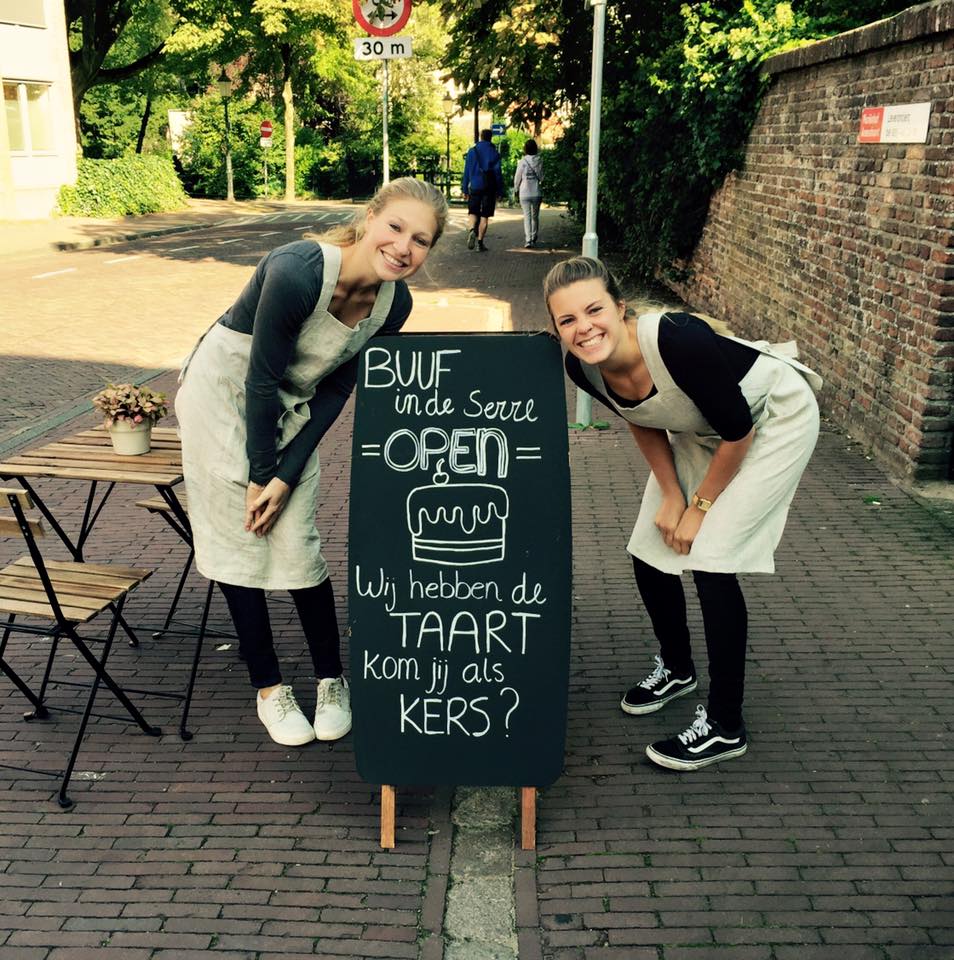 30 m
BUUF
in de Serre
= OPEN =
Wij hebben de
TAART
kom jij als
KERS?